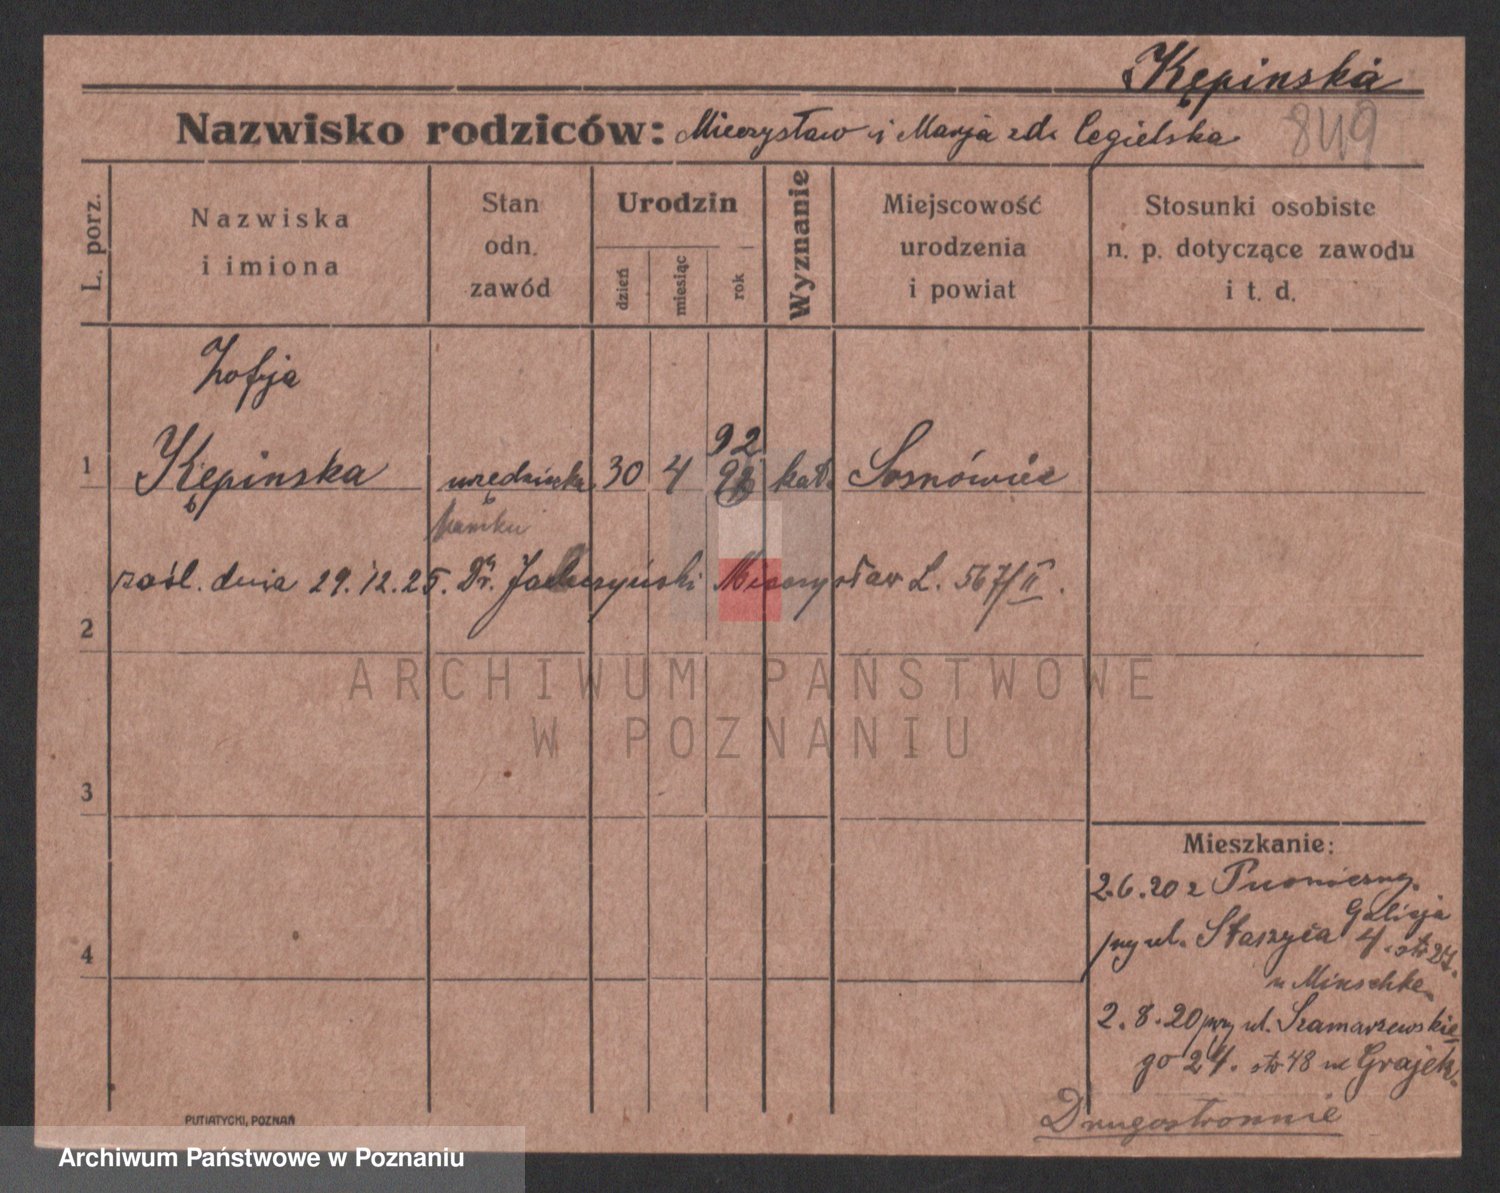 Kępinska
Nazwisko rodziców: Mieczysław i Marja zd. Cegielska 849
L. porz.
Nazwiska
i imiona
Stan
odn.
zawód
Urodzin
dzień
miesiąc
rok
Wyznanie
Miejscowość
urodzenia
i powiat
Stosunki osobiste
n. p. dotyczące zawodu
i t. d.
Zofja
92
1 Kępinska urzędniczka 30 4 kat. Sosnówiec
zaśl. dnia 29.12.25. Dr. Mieczysław L. 567/II.
2
ARCHIWUM PAŃSTWOWE
W POZNANIU
3
Mieszkanie:
2.6.20 z
Galicja
przy ul. Staszyca 4. str 27.
u Minschke
2.8.20 przy ul. Szamarzewskie
go 24. str 48 u Grajek.
4
Drugostronnie
PUTIATYCKI, POZNAŃ
Archiwum Państwowe w Poznaniu